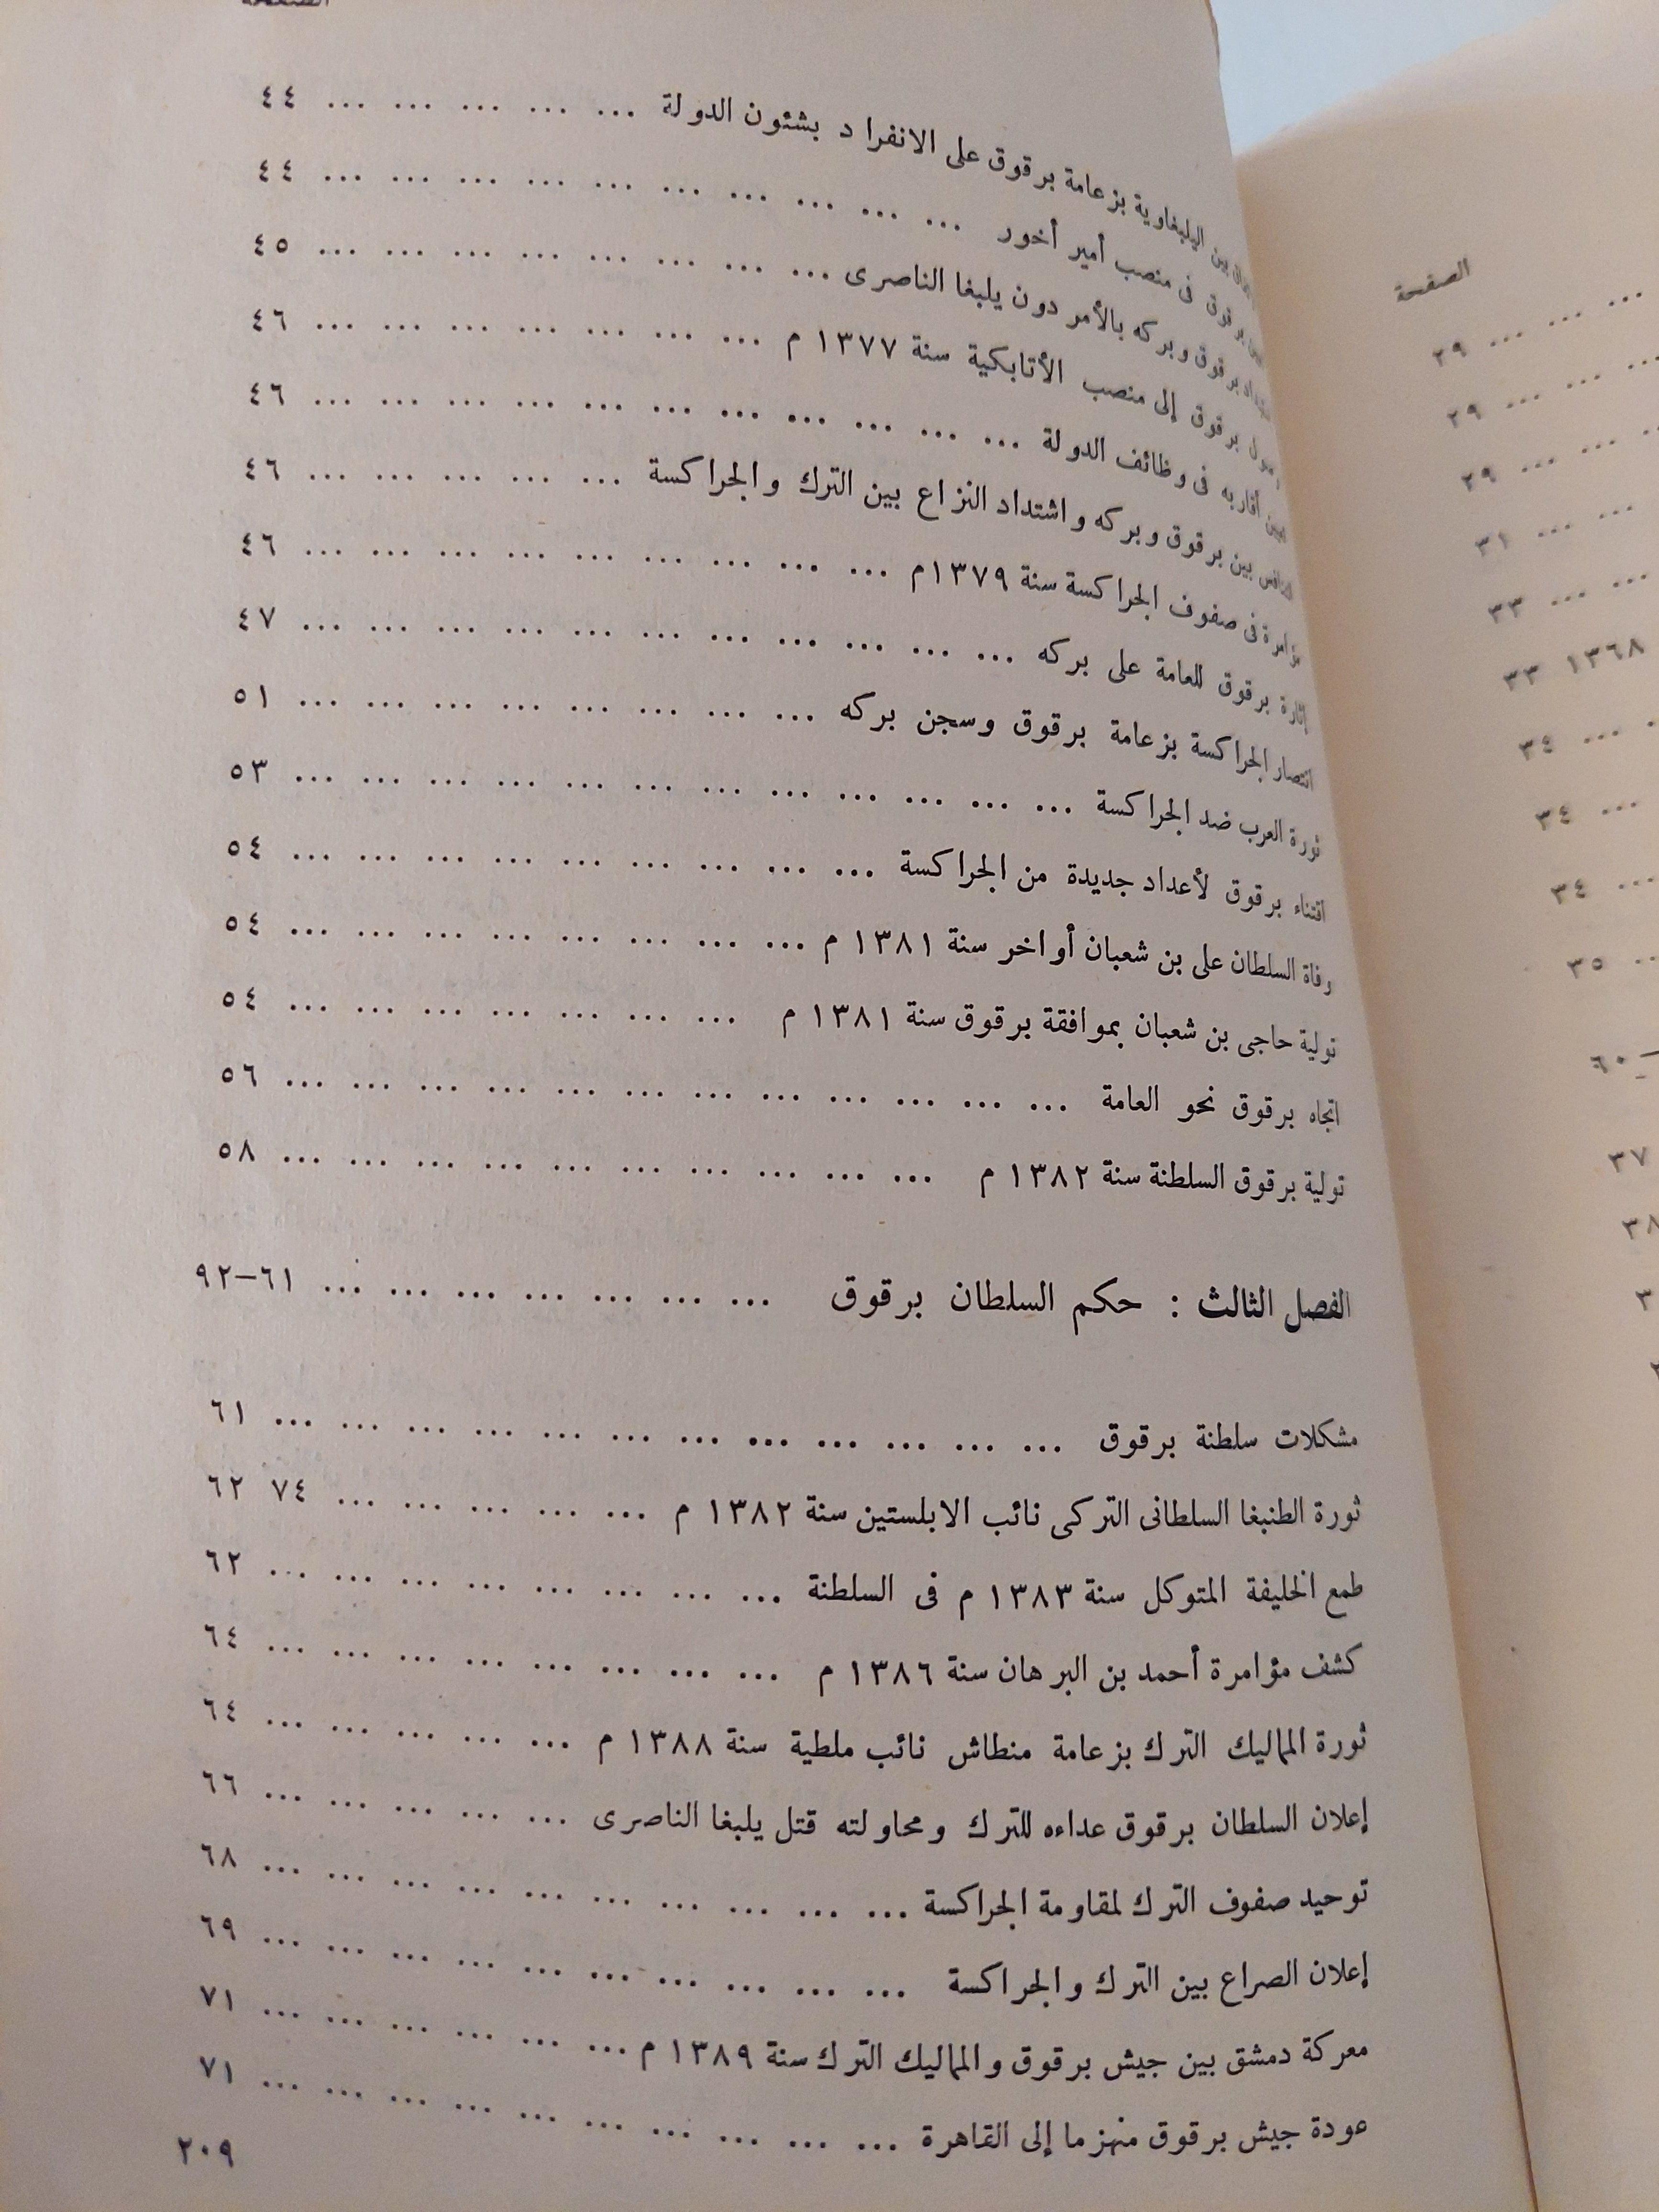 بين اليلبغاوية بزعامة برقوق على الانفراد بشئون الدولة ... ... ... ... ... ٤٤
برقوق فى منصب أمير أخور ... ... ... ... ... ... ... ... ... ... ٤٤
برقوق وبركه بالأمر دون يلبغا الناصرى ... ... ... ... ... ... ... ... ٤٥
برقوق إلى منصب الأتابكية سنة ١٣٧٧ م ... ... ... ... ... ... ... ٤٦
أقاربه فى وظائف الدولة ... ... ... ... ... ... ... ... ... ... ... ٤٦
بين برقوق وبركه واشتداد النزاع بين الترك والجراكسة ... ... ... ... ... ٤٦
مؤامرة فى صفوف الجراكسة سنة ١٣٧٩م ... ... ... ... ... ... ... ... ... ٤٦
إثارة برقوق للعامة على بركه ... ... ... ... ... ... ... ... ... ... ... ٤٧
انتصار الجراكسة بزعامة برقوق وسجن بركه ... ... ... ... ... ... ... ... ٥١
ثورة العرب ضد الجراكسة ... ... ... ... ... ... ... ... ... ... ... ... ٥٣
اقتناء برقوق لأعداد جديدة من الجراكسة ... ... ... ... ... ... ... ... ... ٥٤
وفاة السلطان على بن شعبان أواخر سنة ١٣٨١ م ... ... ... ... ... ... ... ... ٥٤
تولية حاجى بن شعبان بموافقة برقوق سنة ١٣٨١ م ... ... ... ... ... ... ... ٥٤
اتجاه برقوق نحو العامة ... ... ... ... ... ... ... ... ... ... ... ... ٥٦
تولية برقوق السلطنة سنة ١٣٨٢ م ... ... ... ... ... ... ... ... ... ... ٥٨
الفصل الثالث : حكم السلطان برقوق ... ... ... ... ... ... ... ٦١–٩٢
مشكلات سلطنة برقوق ... ... ... ... ... ... ... ... ... ... ... ... ٦١
ثورة الطنبغا السلطانى التركى نائب الابلستين سنة ١٣٨٢ م ... ... ... ... ... ٧٤ ٦٢
طمع الخليفة المتوكل سنة ١٣٨٣ م فى السلطنة ... ... ... ... ... ... ... ... ٦٢
كشف مؤامرة أحمد بن البرهان سنة ١٣٨٦ م ... ... ... ... ... ... ... ... ٦٤
ثورة المماليك الترك بزعامة منطاش نائب ملطية سنة ١٣٨٨ م ... ... ... ... ... ٦٤
إعلان السلطان برقوق عداءه للترك ومحاولته قتل يلبغا الناصرى ... ... ... ... ... ٦٦
توحيد صفوف الترك لمقاومة الجراكسة ... ... ... ... ... ... ... ... ... ... ٦٨
إعلان الصراع بين الترك والجراكسة ... ... ... ... ... ... ... ... ... ... ٦٩
معركة دمشق بين جيش برقوق والمماليك الترك سنة ١٣٨٩ م ... ... ... ... ... ... ٧١
عودة جيش برقوق منهزما إلى القاهرة ... ... ... ... ... ... ... ... ... ... ٧١
٢٠٩
الصفحة
... ... ... ٢٩
... ... ... ٢٩
... ... ... ٢٩
... ... ٣١
... ... ... ٣٣
١٣٦٨ ٣٣
... ٣٤
... ٣٤
... ٣٤
... ٣٥
–٦٠
٣٧
٣٨